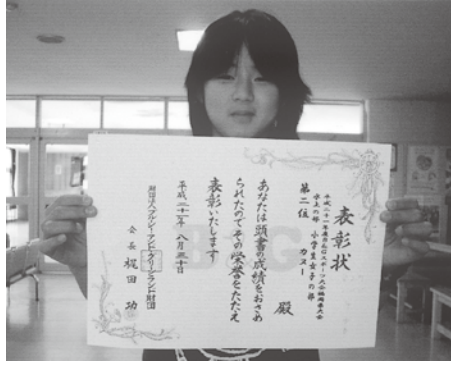 表彰状
平成二十一年度B&Gスポーツ大会福岡県大会
水上の部 小学生女子の部
カヌー
第二位
殿
あなたは頭書の成績をおさめ
られたのでその栄誉をたたえ
表彰いたします
平成二十一年八月三十日
財団法人ブルーシー・アンド・グリーンランド財団
会長 梶田 功
B&G